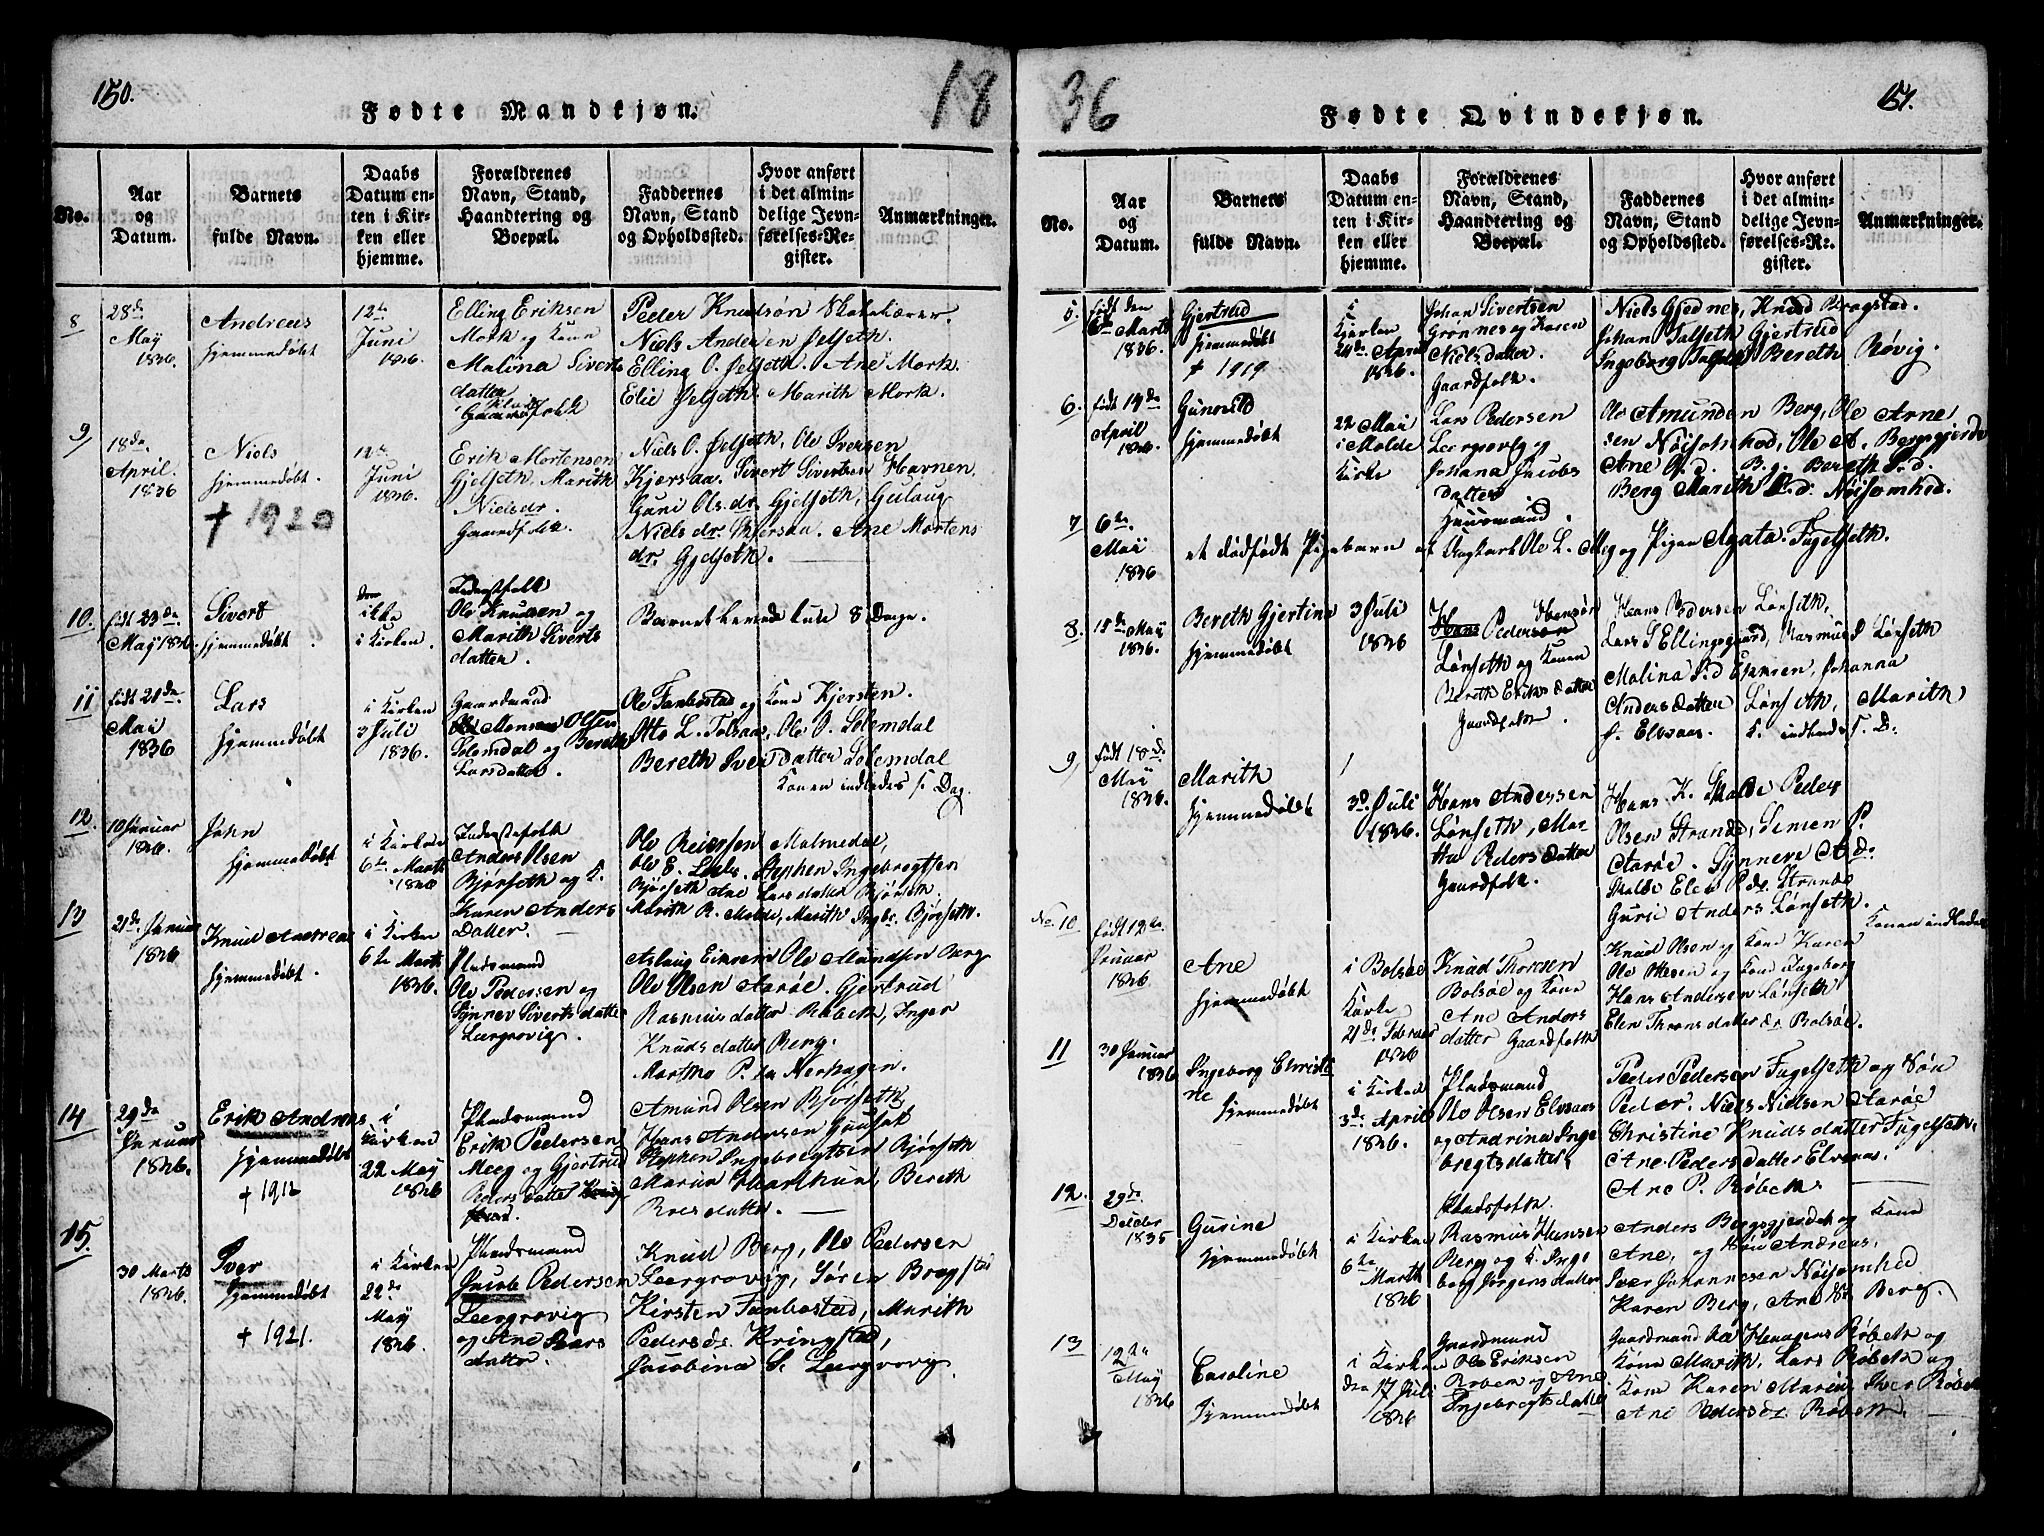 150.
Fødte Mandkjøn.
18
No.
Aar
og
Datum.
Barnets
fulde Navn.
Daabs
Datum en-
ten i Kir-
ken eller
hjemme.
Forældrenes
Navn, Stand,
Haandtering og
Boepæl.
Faddernes
Navn, Stand
og Opholdssted.
Hvor anført
i det almin-
delige Jevn-
førelses-Re-
gister.
Anmærkninger.
8
28de
May
1836.
Andreas
hjemmedøbt
12te
Juni
1836.
Elling Eriksen
Mork og Kone
Malina Siverts
datter
Gaardfolk
Peder Knudsøn
Niels Andersen Jelseth.
Elling O. Jelseth. Ane Mork.
Elie Jelseth. Marith Mork.
9
18de
April.
1836
Niels
hjemmedøbt.
† 1920
12te
Juni
1836.
Erik Mortensen
Gjelseth. Marith
Nielsdr.
Gaardfolk.
Niels O. Jelseth, Ole Iversen
Kjersaa. Sivert Sivertsen Havnen.
Guri Olsdr. Gjelseth, Gulaug
Niels dr. Kjersaa. Ane Mortens
dr. Gjelseth.
10.
født 23de
May 1836.
Sivert
hjemmedøbt
ikke
i Kirken.
Inderstfolk
Ole Knudsen og
Marith Siverts
datter.
Barnet levede kun 8 Dage.
11
født 21de
Mai
1836
Lars
hjemmedøbt
i Kirken
3 Juli
1836.
Gaardmand
Monsen Olsen
Solemdal og Bereth
Larsdatter.
Ole Fanbostad og Kone Kjersten.
Otto L. Tolsaas, Ole O. Solemdal
Bereth Iversdatter Solemdal
Konen indledes s. Dag.
12.
10 Januar
1836.
John
hjemmedøbt
i Kirken
6te Marth
1836
Inderstfolk
Anders Olsen
Bjørseth og K.
Karen Anders
Datter.
Ole Reiersen Malmedal,
Ole E. Stephen Ingebregtsen
Bjørseth Ane Larsdatter Bjørseth.
Marith R. Molde, Marith Ingbr. Bjørseth.
13
21de Januar
1836
Knud Andreas
hjemmedøbt.
i Kirken
6te Marth
1836.
Pladsmand
Ole Pedersen og
Synnev Siverts datter
Leergrovig.
Aslaug Ole Amundsen Berg
Ole Olsen Aarøe. Gjertrud
Rasmusdatter Røbek, Inger
Knudsdatter Berg.
Martha P.da Nerhagen.
14
29de
Januar
1836.
Erik Andreas
hjemmedøbt
† 1912
i
Kirken
22 May
1836
Pladsmand
Erik Pedersen
Meeg og Gjertrud
Peders datter
Amund Olsen Bjørseth,
Hans Andersen
Stephen Ingebregtsen Bjørseth
Maria Bereth
Roesdatter.
15.
30 Marts
1836.
Iver
hjemmedøbt
† 1921.
i Kirken
22de
May
1836.
Pladsmand
Jacob Pedersen
Leergrovig
og Ane Lars
datter.
Knud Berg, Ole Pedersen
Leergrovig, Søren Bragstad
Kirsten Fanbostad, Marith
Pedersdr. Kringstad,
Jacobina S. Leergrovig.
36
151.
Fødte Qvindekjøn.
No.
Aar
og
Datum.
Barnets
fulde Navn.
Daabs
Datum en-
ten i Kir-
ken eller
hjemme.
Forældrenes
Navn, Stand,
Haandtering og
Boepæl.
Faddernes
Navn, Stand
og Opholdssted.
Hvor anført
i det almin-
delige Jevn-
førelses-Re-
gister.
Anmærkninger.
5.
født den
6te Marts
1836.
Gjertrud
hjemmedøbt
† 1919.
i
Kirken
24de April
1836.
Johan Sivertsen
Grønnes og Karen
Nielsdatter.
Gaardfolk.
Niels Gjednes, Knud Bragstad.
Johan Talseth Gjertrud
Ingeborg Talseth Bereth Røvig.
6.
født 14de
April
1836.
Gunnild
hjemmedøbt
22 Mai
i Molde
Kirke
Lars Pedersen
Leergrovig og
Johana Jacobs
datter
Huusmand.
Ole Amundsen Berg, Ole Arne
sen Nøisomhed, Ole A. Bergsgjerde
Ane O.d. Berg. Bereth P.d.
Berg Marith P.d. Nøisomhed.
7
6te
May
1836
et dødfødt Pigebarn af Ungkarl Ole L. Meg og Pigen Agata Fugelseth.
8.
15de May
1836.
Bereth Gjertina
hjemmedøbt
3 Juli
1836
Hans Pedersøn
Lønseth og Konen
Bereth Eriks datter
Gaardfolk.
Hans Pedersen Lønseth,
Lars S Ellingsgaard, Rasmus P Lønseth
Malina P.d Johanna
Andersdatter Lønseth, Marith
s. Elvsaas. K. indledes s. D.
9,
født 18de
May
1836.
Marith
hjemmedøbt
3d Juli
1836.
Hans Andersen
Lønseth, Mar
tha Pedersdatter
Gaardfolk.
Hans K. Skalde Peder
Olsen Strande, Simen P.
Aarøe. Synneve A dr
Skalde Elen P dr. Strande
Guri Anders Lønseth.
Konen indledes
No. 10
født 12te
Januar
1836.
Ane
hjemmedøbt
i Bolsøe
Kirke
21de Februar
1836
Knud Thoresen
Bolsøe og Kone
Ane Anders
datter Gaardfolk
Knud Olsen og Kone Karen
Ole Ottesen og Kone Ingeborg
Hans Andersen Lønseth
Elen Thoresdatter Bolsøe.
11
30 Januar
1836
Ingeborg Christi
ne
hjemmedøbt
i Kirken
3de April
1836.
Pladsmand
Ole Olsen Elvsaas
og Andrina Inge
bregtsdatter
Peder Pedersen Fugelseth og Søn
Peder. Niels Nielsen Aarøe
Christine Knudsdatter Fugelseth.
Ane Pedersdatter Elvsaas.
Ane P. Røbek.
12.
29de
Decbr
1835
Gurine
hjemmedøbt
i Kirken
6te
Marth
1836
Pladsfolk.
Rasmus Hansen
Berg og K. Inge
borg Jørgensdatter
Anders Bergsgjerdet og Kone
Ane, og Søn Andreas,
Peer Johannesen Nøisomhed
Karen Berg, Ane Berg.
13
12te
May
1836
Caroline
hjemmedøbt
i Kirken
den 17 Juli
1836
Gaardmand
Ole Eriksen
Røbek og Ane
Ingebregtsdatter
Gaardmand Røbek og
Kone Marith, Lars Røbek og
Kone Karen Maria, Iver Røbek
Ane Pedersdr. Røbek.